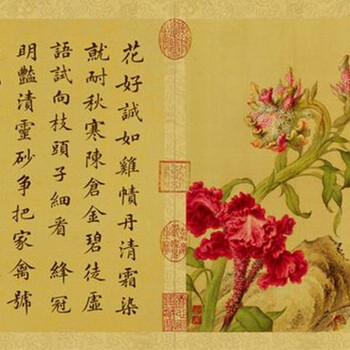 花好誠如雞幘丹清霜染
就耐秋寒陳倉金碧徒虛
語試向枝頭子細看 絳冠
明豔漬靈砂爭把家禽號